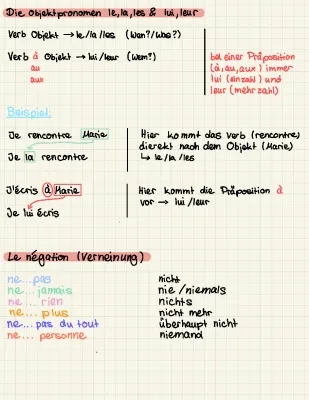 Die Objektpronomen le,la,les & lui,leur
Verb Objekt → le/la/les (Wen?/Was?)
Verb à Objekt → lui/leur (Wem?)
au
aux
bei einer Präposition
(à,au,aux) immer
lui (einzahl) und
leur (mehrzahl)
Beispiel:
Je rencontre Marie
Je la rencontre
Hier kommt das Verb (rencontre)
dierekt nach dem Objekt (Marie)
↳ le/la/les
J'écris à Marie
Je lui écris
Hier kommt die Präposition à
vor → lui/leur
Le négation (Verneinung)
ne...pas nicht
ne...jamais nie/niemals
ne...rien nichts
ne...plus nicht mehr
ne...pas du tout überhaupt nicht
ne...personne niemand